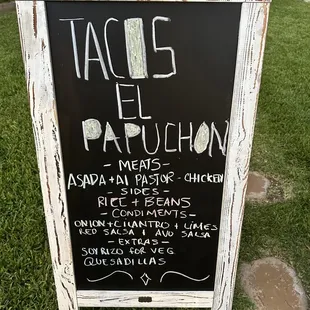 TACOS
EL
PAPUCHON
- MEATS -
ASADA + Al PASTOR - CHICKEN
- SIDES -
RICE + BEANS
- CONDIMENTS -
ONION + CILANTRO + LIMES
RED SALSA | AVO SALSA
- EXTRAS -
SOYRIZO FOR VEG
QUESADILLAS